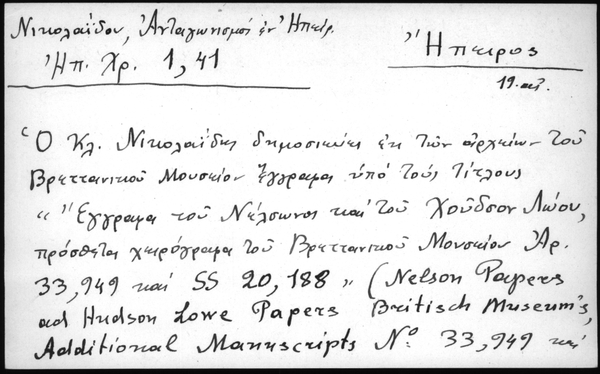 Νικολαΐδου, Ἀνταγωνισμοί ἐν Ἠπείρ.
Ἠπ. Χρ. 1, 41
Ἤπειρος
19. αἰ.
Ὁ Κλ. Νικολαΐδης δημοσιεύει ἐκ τῶν ἀρχείων τοῦ
Βρεττανικοῦ Μουσείου ἔγγραφα ὑπό τούς τίτλους
"Ἔγγραφα τοῦ Νέλσωνος καί τοῦ Χοῦδσον Λώου,
πρόσθετα χειρόγραφα τοῦ Βρεττανικοῦ Μουσείου Ἀρ.
33,949 καί SS 20,188" (Nelson Papers
ad Hudson Lowe Papers Britisch Museum's,
Additional Manuscripts Nº 33,949 καί